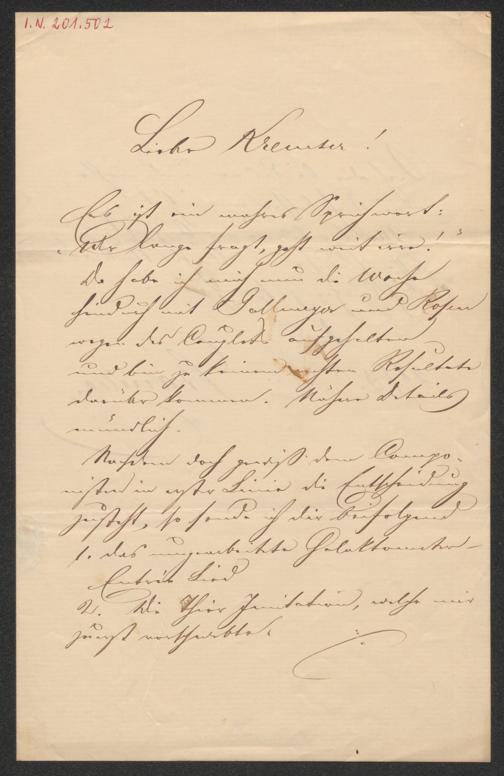 I.N. 201.502
Lieber Kremser!
Es ist ein wahres Sprichwort:
„Wer lange fragt, geht weit irre!"
Da habe ich mich nun die Woche
hindurch mit Gallmeyer und Rosen
wegen des Couplets aufgehalten
und bin zu keinem rechten Resultate
darüber kommen. Nähere Details
mündlich.
Nachdem doch gewiß dem Compo-
nisten in erster Linie die Entscheidung
zusteht, so sende ich dir beifolgend
1. das umgearbeitete Galaktometer-
Entrée Lied
2. Die Thier Imitation, welche mir
zuerst vorschwebte.